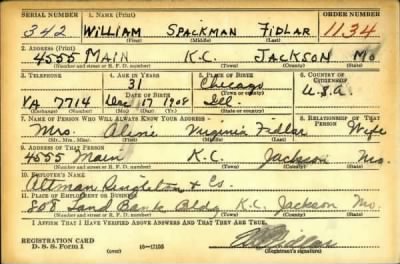 SERIAL NUMBER 1. NAME (Print) ORDER NUMBER
342 WILLIAM SPACKMAN FIDLAR 1134
(First) (Middle) (Last)
2. ADDRESS (Print)
4555 MAIN K.C. JACKSON MO
(Number and street or R. F. D. number) (Town) (County) (State)
3. TELEPHONE 4. AGE IN YEARS 5. PLACE OF BIRTH 6. COUNTRY OF CITIZENSHIP
31 Chicago
DATE OF BIRTH (Town or county) U.S.A.
VA 7714 Dec 17 1908 Ill.
(Exchange) (No.) (Mo.) (Day) (Yr.) (State or country)
7. NAME OF PERSON WHO WILL ALWAYS KNOW YOUR ADDRESS 8. RELATIONSHIP OF THAT PERSON
Mrs. Virginia Fidlar Wife
(Mr., Mrs., Miss) (First) (Middle) (Last)
9. ADDRESS OF THAT PERSON
4555 Main K.C. Jackson Mo.
(Number and street or R. F. D. number) (Town) (County) (State)
10. EMPLOYER'S NAME
Altman Singleton & Co.
11. PLACE OF EMPLOYMENT OR BUSINESS
808 Land Bank Bldg K.C. Jackson Mo.
(Number and street or R. F. D. number) (Town) (County) (State)
I AFFIRM THAT I HAVE VERIFIED ABOVE ANSWERS AND THAT THEY ARE TRUE.
REGISTRATION CARD
D. S. S. Form 1 16—17105 (Registrant's signature)